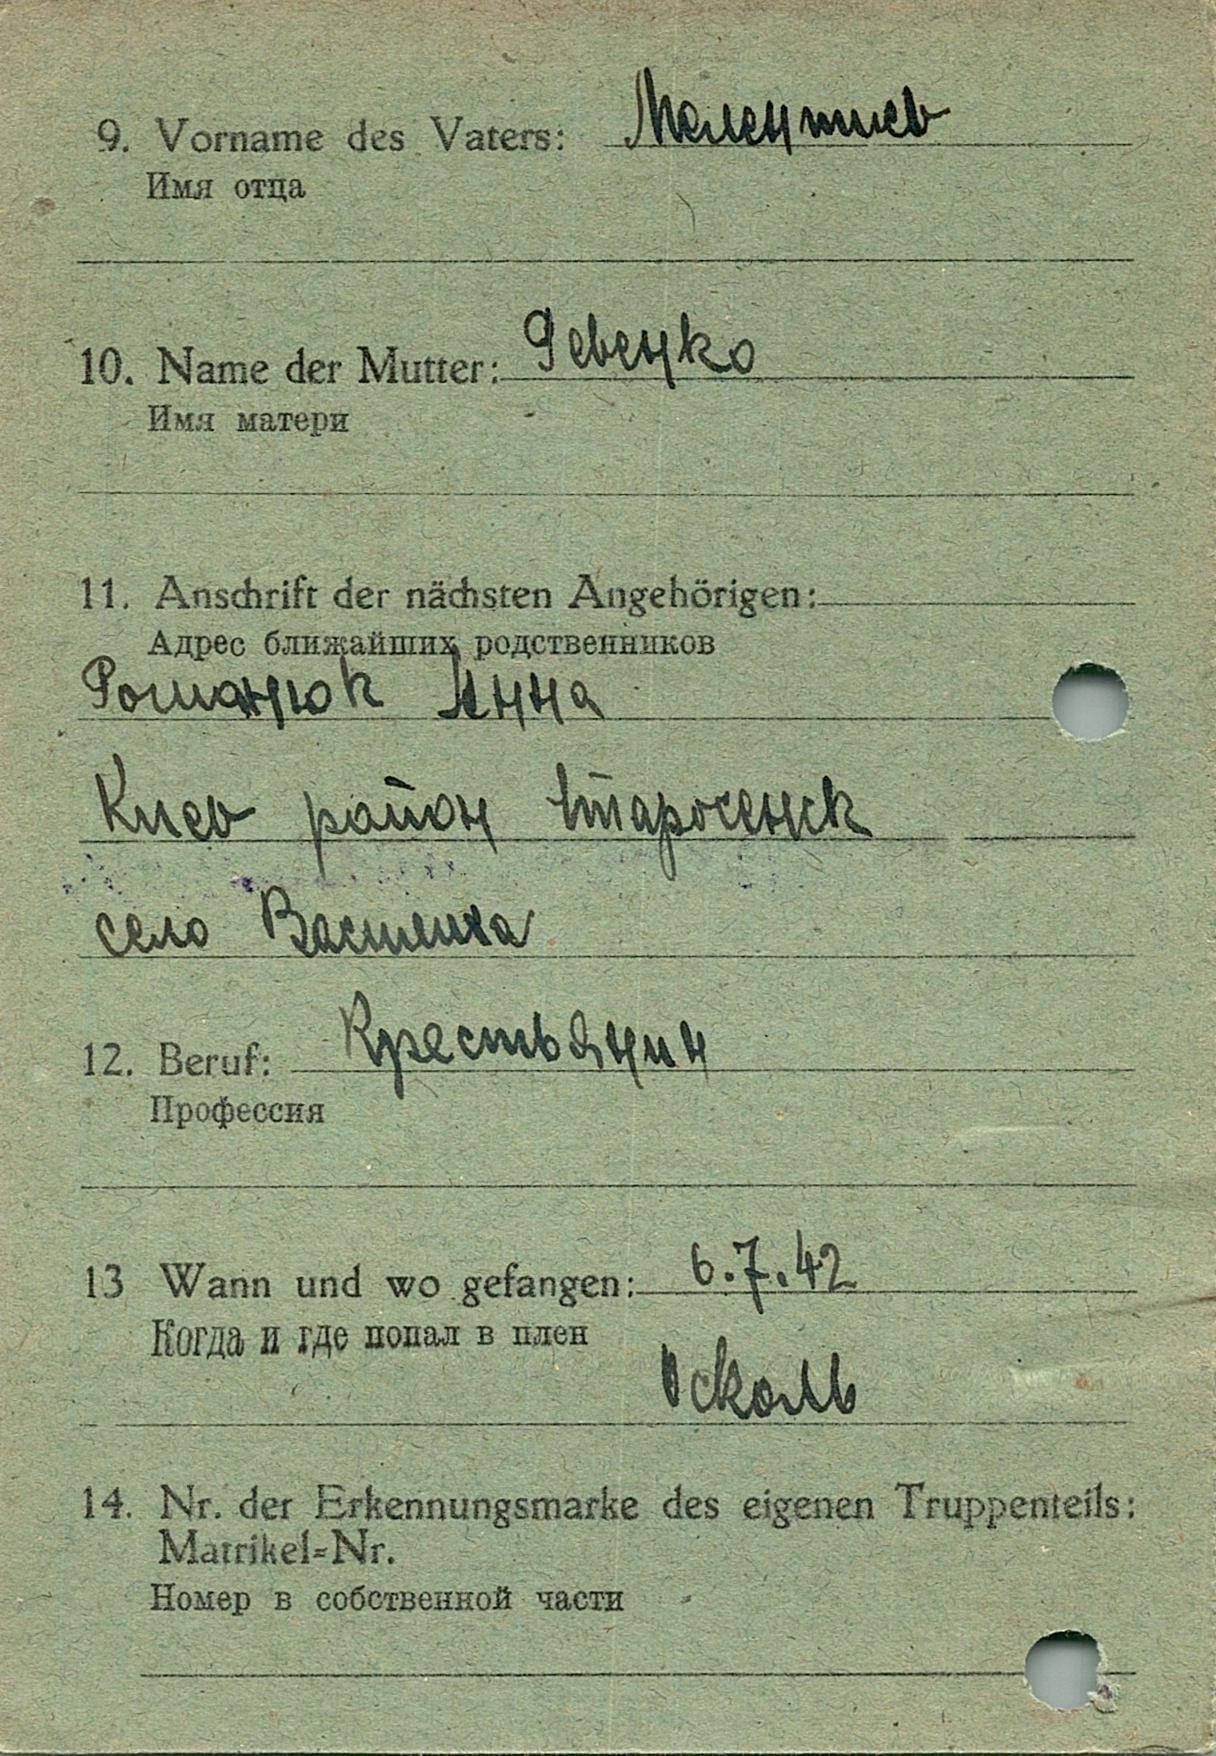 9. Vorname des Vaters: Мелентиев
Имя отца
10. Name der Mutter: Ревенко
Имя матери
11. Anschrift der nächsten Angehörigen:
Адрес ближайших родственников
Романюк Анна
Киев район
село Василиха
12. Beruf: Крестьянин
Профессия
13 Wann und wo gefangen: 6.7.42
Когда и где попал в плен
Осколь
14. Nr. der Erkennungsmarke des eigenen Truppenteils:
Matrikel=Nr.
Номер в собственной части